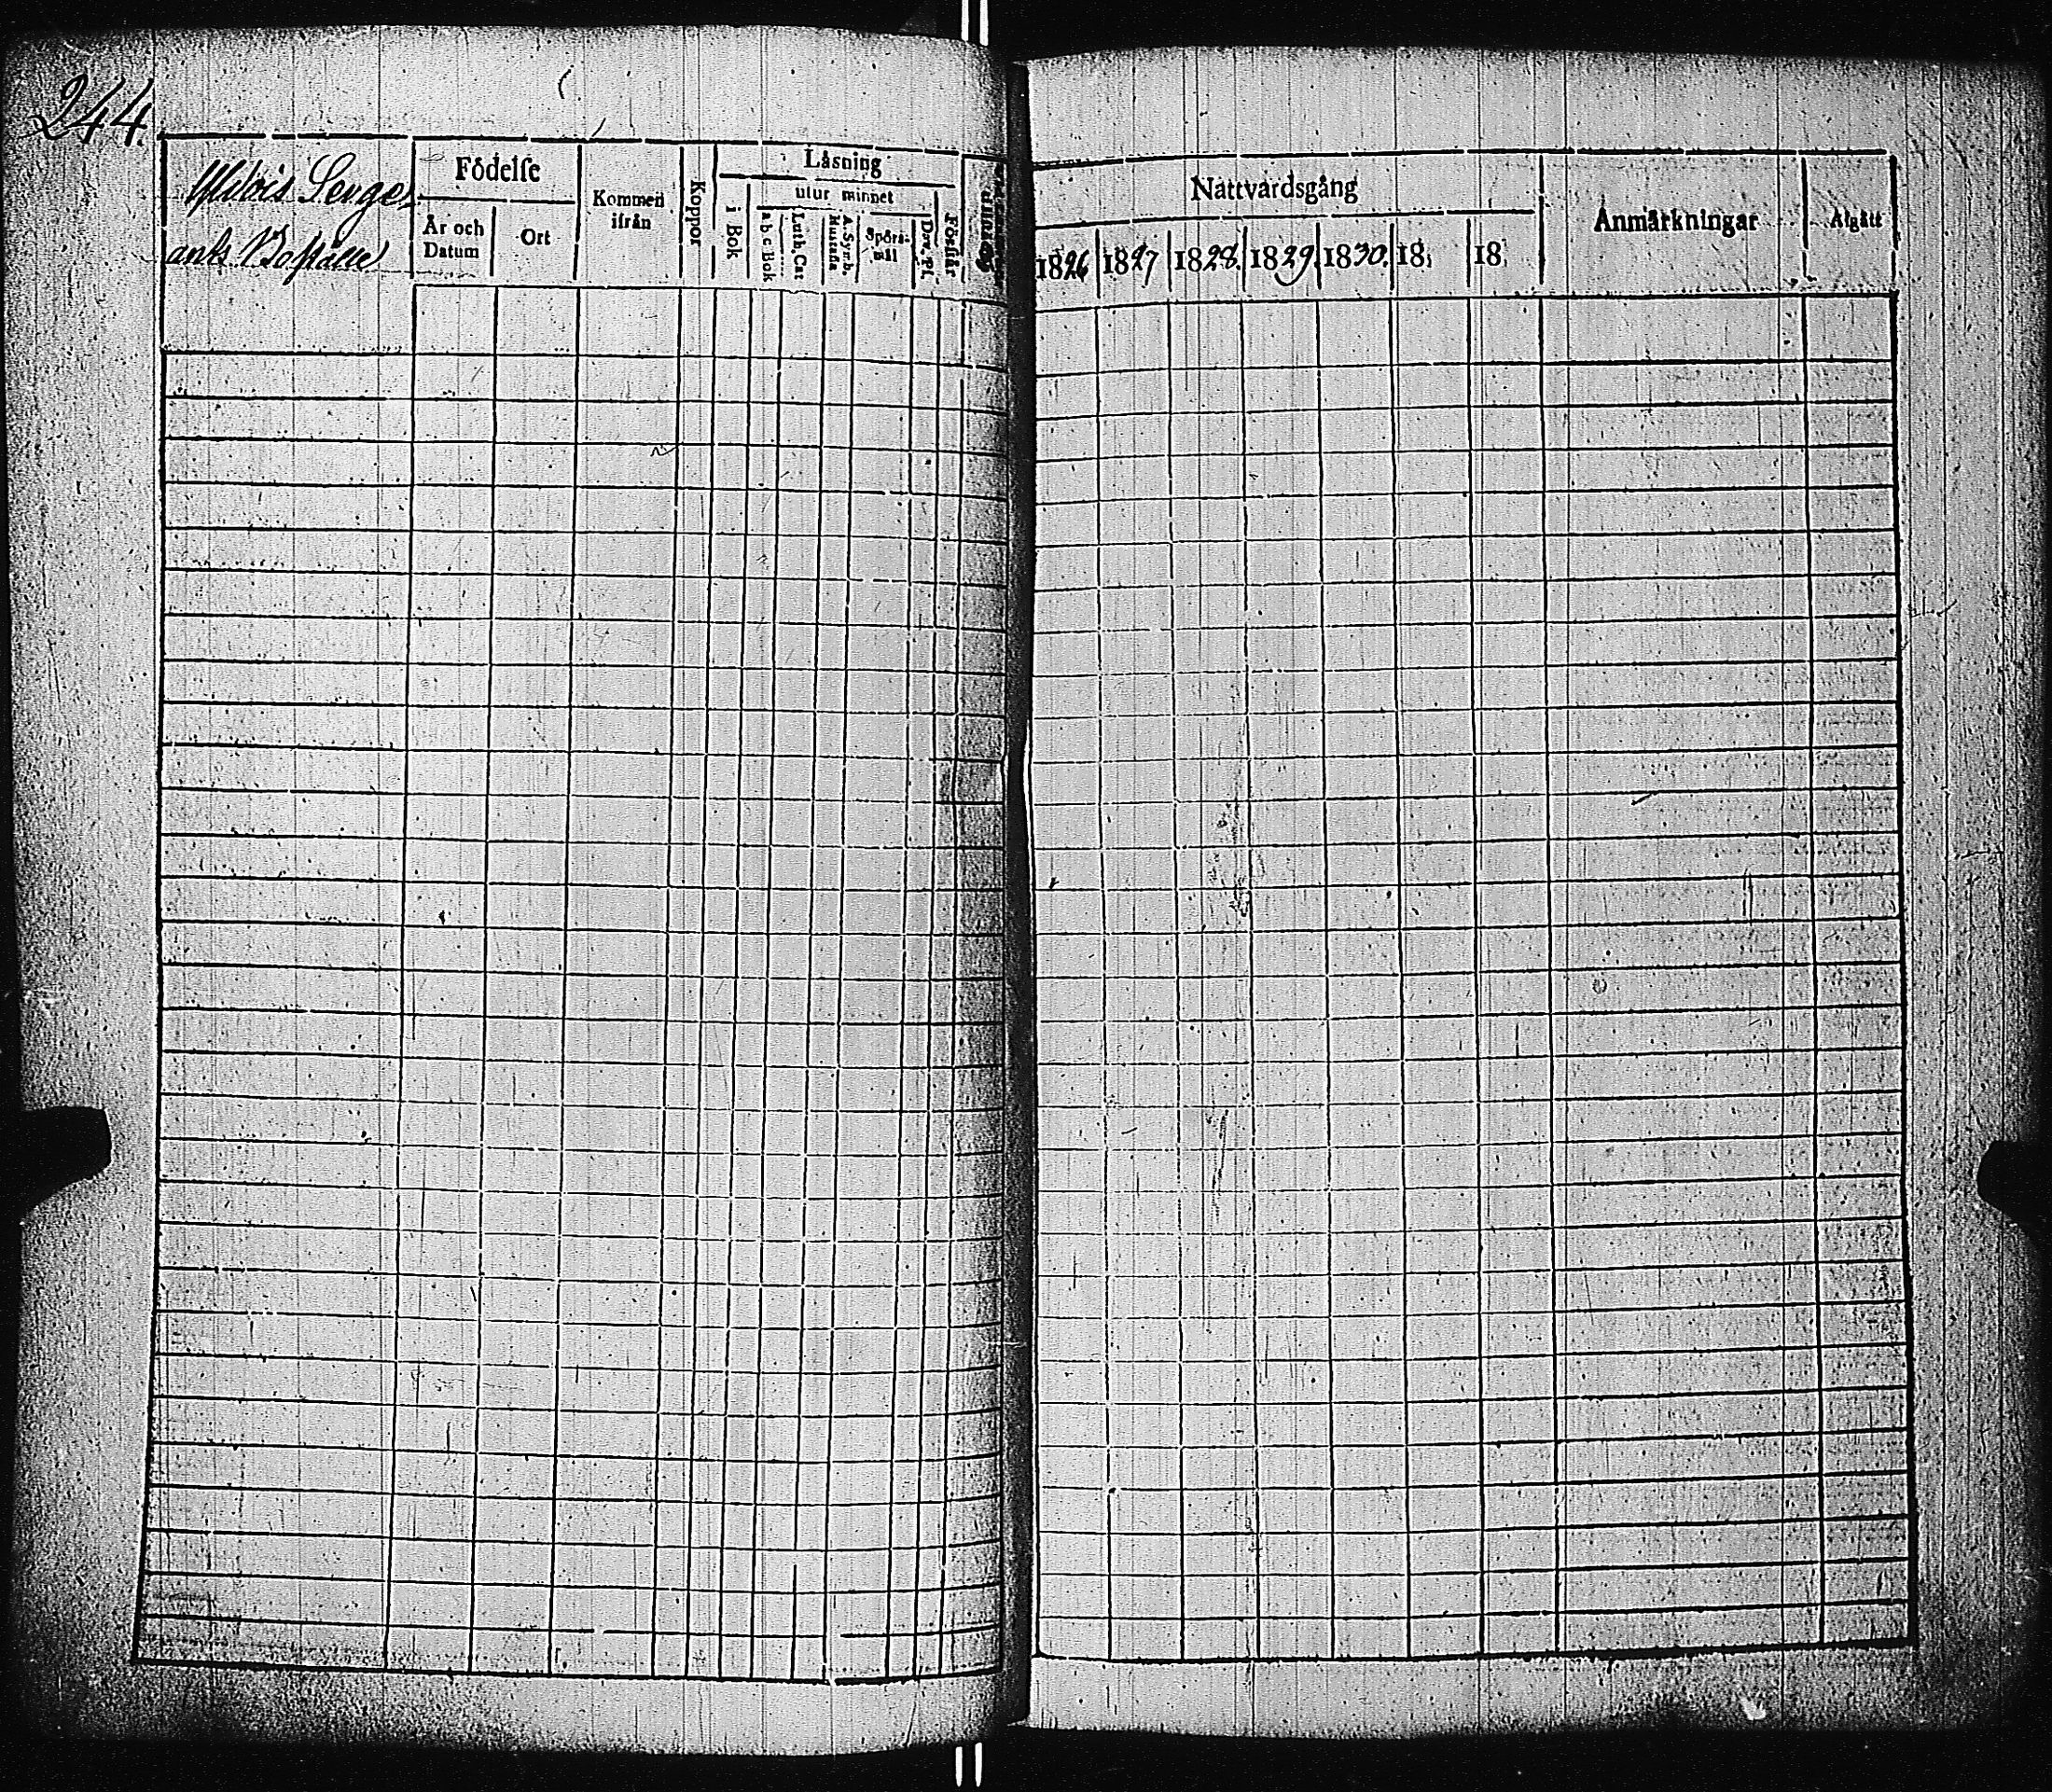 244.
Serge-
ants Boställe
Födelse
År och Datum
Ort
Kommen ifrån
Koppor
Läsning
i Bok
utur minnet
a b c Bok
Luth. Cat
A. Symb. Hustafla
Spörs-
mål
Dav. Ps.
Förstår
Nattvardsgång
1826 1827 1828. 1829. 1830. 18 18
Anmärkningar
Afgått